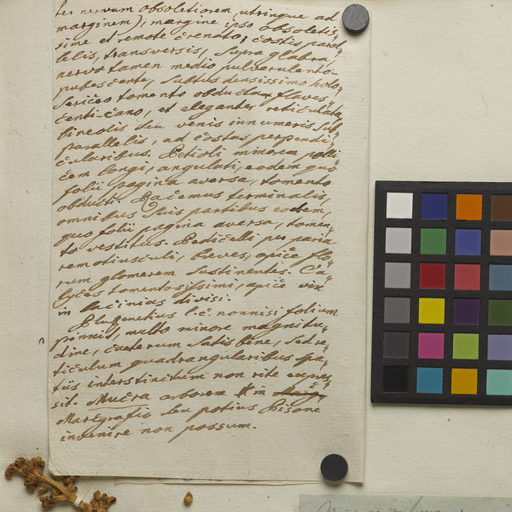 ter nervum obsoletiorem, utrinque ad
marginem), margine ipso obsoletis,
sime et remote crenato; costis paral,
lelis, transversis, supra glabra,
nervo tamen medio pulverulento
pubescente, subtus densissimo holo,
sericeo tomento obducta flaves,
centi-cano, et eleganter reticulata
lineolis seu venis innumeris sub,
parallelis, ad costas perpendi,
cularibus. Petioli minorem polli
cem longi, angulati, eodem quo
folii pagina aversa, tomento
obducti. Racemus terminalis,
omnibus suis partibus eodem,
quo folii pagina aversa, tomen,
to vestitus. Pedicelli per paria
remotiusculi, breves, apice flo,
rum glomerem sustinentes. Ca,
lyces tomentosissimi, apice vix
in lacinias divisi.
folium
pinnis, multo minore magnitu,
dine, caeterum satis bene, sed re,
ticulum quadrangularibus spa,
tiis interstinctum non rite expres,
sit. arborem in
Marcgrafio seu potius Pisone
invenire non possum.